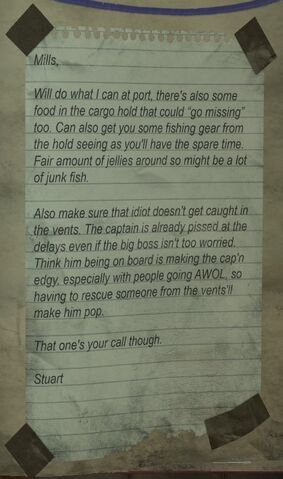 Mills,
Will do what I can at port, there's also some
food in the cargo hold that could "go missing"
too. Can also get you some fishing gear from
the hold seeing as you'll have the spare time.
Fair amount of jellies around so might be a lot
of junk fish.
Also make sure that idiot doesn't get caught in
the vents. The captain is already pissed at the
delays even if the big boss isn't too worried.
Think him being on board is making the cap'n
edgy, especially with people going AWOL, so
having to rescue someone from the vents'll
make him pop.
That one's your call though.
Stuart